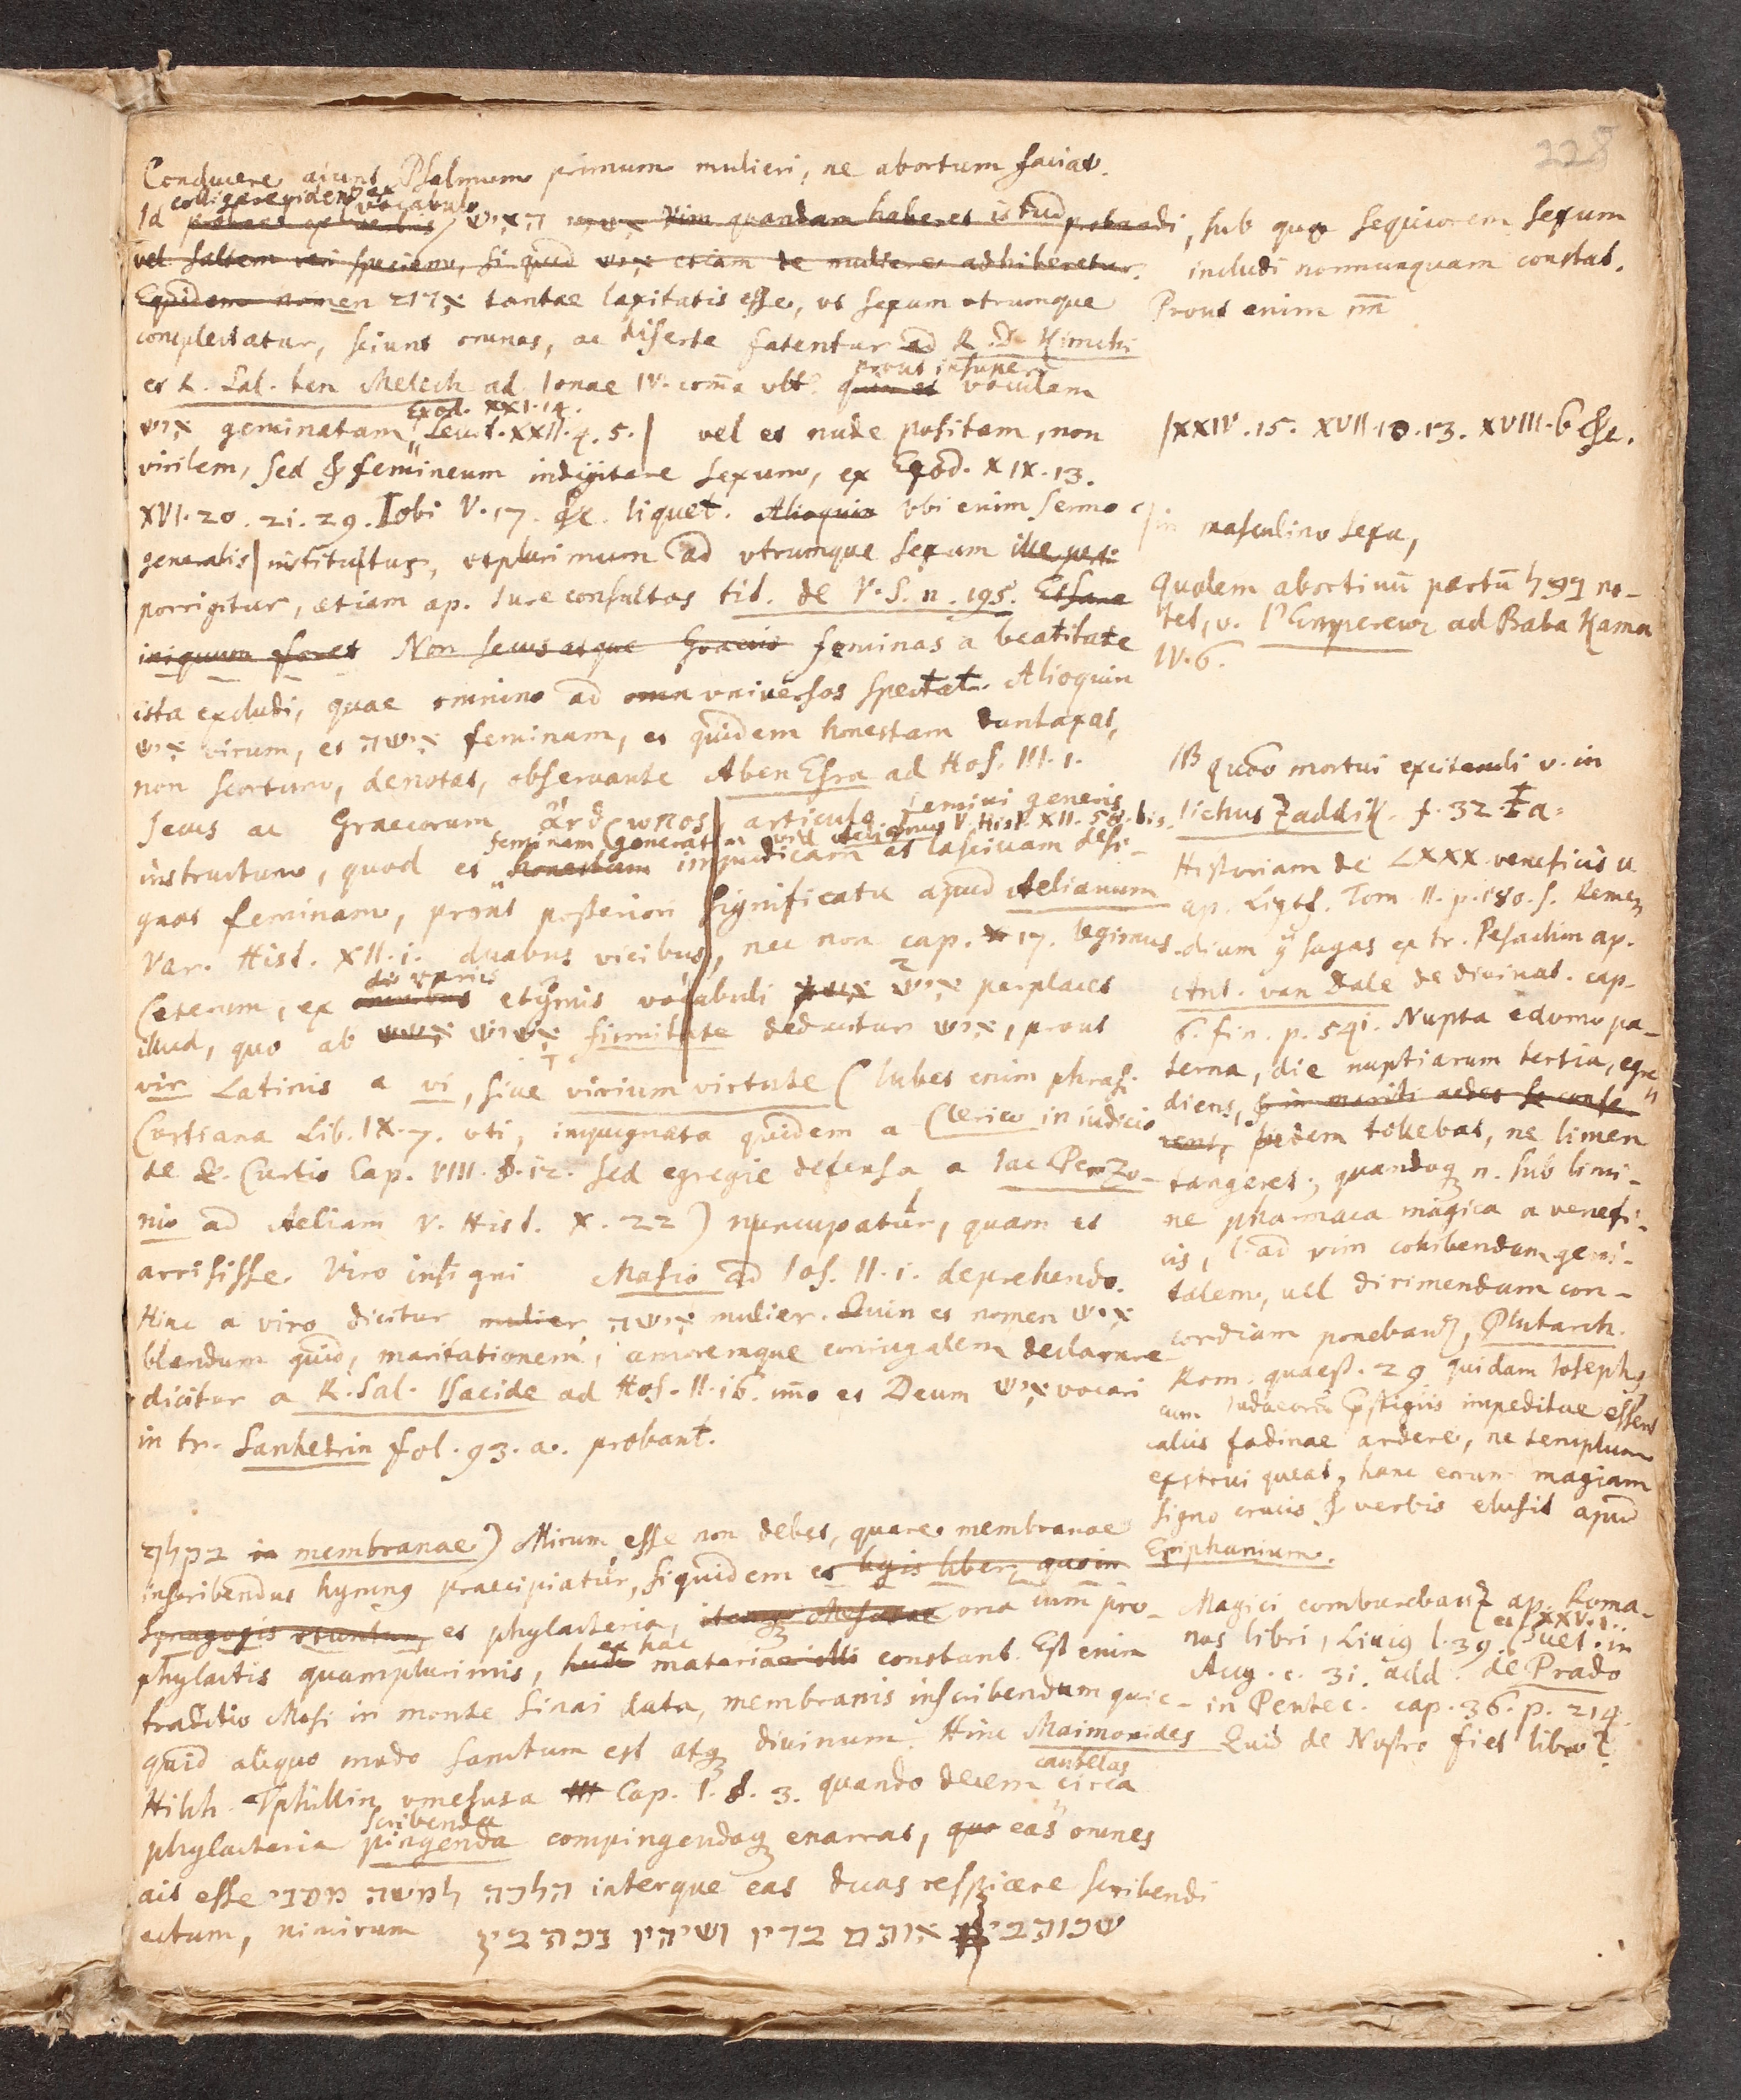 228
Conducere aiunt Psalmum primum mulieri, ne abortum faciat.
colligere evidenter ex vocabulo
Id probant ex verbis האיש Vim quandam haberet istud probandi
vel saltem veri speciem, si quid איש etiam de muliere adhiberetur.
Equidem nomen אדם tantae laxitatis esse, ut sexum utrumque
complectatur, sciunt omnes, ac diserte fatentur ad R. D. Kimchi
et R. Sal. ben Melech ad Ionae IV. com̄a ult. prout insuper voculam
איש geminatam Exod. XXI. 14. Levit. XXII. 4. 5. | vel et nude positam, non
virilem, sed & femineum indigitare sexum, ex Exod. XIX. 13.
XVI. 20. 21. 29. Iobi V. 17. &c. liquet. Alioquin Vbi enim sermo
generalis | institutus, utplurimum ad utrumque sexum ille
porrigitur, etiam ap. Iure consultos tit. de V. S. n. 195. Et sane
iniquum foret Non secus atque Graecis feminas a beatitate
ista excludi, quae omnino ad universos spectat. Alioquin
איש virum, et אישה feminam, et quidem honestam duntaxat,
non scortum, denotat, observante Aben Esra ad Hos. III. 1.
secus ac Graecorum ἄνθρωπος articulo feminini generis
instructum, quod et feminam generatim V. Hist. XII. bis.
honestam impudicam et lascivam desi-
gnat feminam, prout posteriori significatu apud Aelianum
Var. Hist. XII. 1. duabus vicibus, nec non cap. 17. legimus.
Ceterum, ex diversis etymis vocabuli איש perplacet
illud, quo ab אשש אשיש firmitate deducitur איש, prout
vir Latinis a vi, sive virium virtute (Iubet enim phrasi
Curtiana Lib. IX. 7. uti, impugnata quidem a Clerico in iudicio
de Q. Curtio Cap. VIII. §. 12. sed egregie defensa a Iac. Perizo-
nio ad Aelian. V. Hist. X. 22) nuncupatur, quam et
arrisisse Viro insigni Masio ad Ios. II. 1. deprehendo.
Hinc a viro dicitur mulier אישה mulier. Quin et nomen איש
blandum quid, maritationem, amoremque coniugalem declarare
dicitur a R. Sal. Isacide ad Hos. II. 16. im̄o et Deum איש vocari
in tr. Sanhedrin fol. 93. a. probant.
בקלף in membranae) Mirum esse non debet, quare membranae
inscribendus hymnus praecipiatur, siquidem et legis liber, quo in
Synagogis utuntur, et phylacteria, itemq Mesusae oīa cum pro-
phylactis quamplurimis, ex hac materia illi constant. Est enim
traditio Mosi in monte Sinai data, membranis inscribendum quic-
quid aliquo modo sanctum est atq divinum. Hinc Maimonides
Hilch. Tphillin umesusa Cap. I. §. 3. quando decem cautelas circa
phylacteria scribenda pingenda compingendaq enarrat, quo eas omnes
ait esse הלכה למשה מסיני interque eas duas respicere scribendi
actum, nimirum שכותבין אותם בדיו ושיהיו נכתבין
, sub quo sequiorem sexum
includi nonnunquam constat.
Prout enim nn̄
|XXIV. 15. XVII. 10. 13. XVIII. 6 &c.
|in masculino sexu,
Qualem abortivū partū נפל no-
tet, v. l'Empereur ad Baba Kama
IV. 6.
NB quōo mortui excitandi v. in
lichus Zaddik. f. 32. a:
Historiam de LXXX veneficis v.
ap. Ligtf. Tom. II. p. 180. s. Reme-
dium sagas ex tr. Pesachim ap.
Ant. van Dale de divinat. cap.
6. fin. p. 541. Nupta e domo pa-
terna, die nuptiarum tertia, egre-
diens, & in mariti aedes se confe-
rens, pedem tollebat, ne limen
tangeret; quandoq n. sub limi-
ne pharmaca magica a venefi-
cis, l. ad vim cohibendam geni-
talem, vel dirimendam con-
cordiam ponebant, Plutarch.
Rom. quaest. 29. quidam Iosephus
cum Iudaeorum praestigiis impeditae essent
calcis fodinae ardere, ne templum
exstrui queat, hanc eorum magiam
signo crucis & verbis elusit apud
Epiphanium.
Magici comburebant ap. Roma-
nos libri, Livius l. 39. et XXV. 1. Suet. in
Aug. c. 31. add. de Prado
in Pentec. cap. 36. p. 214.
Quid de Nostro fiet libro?